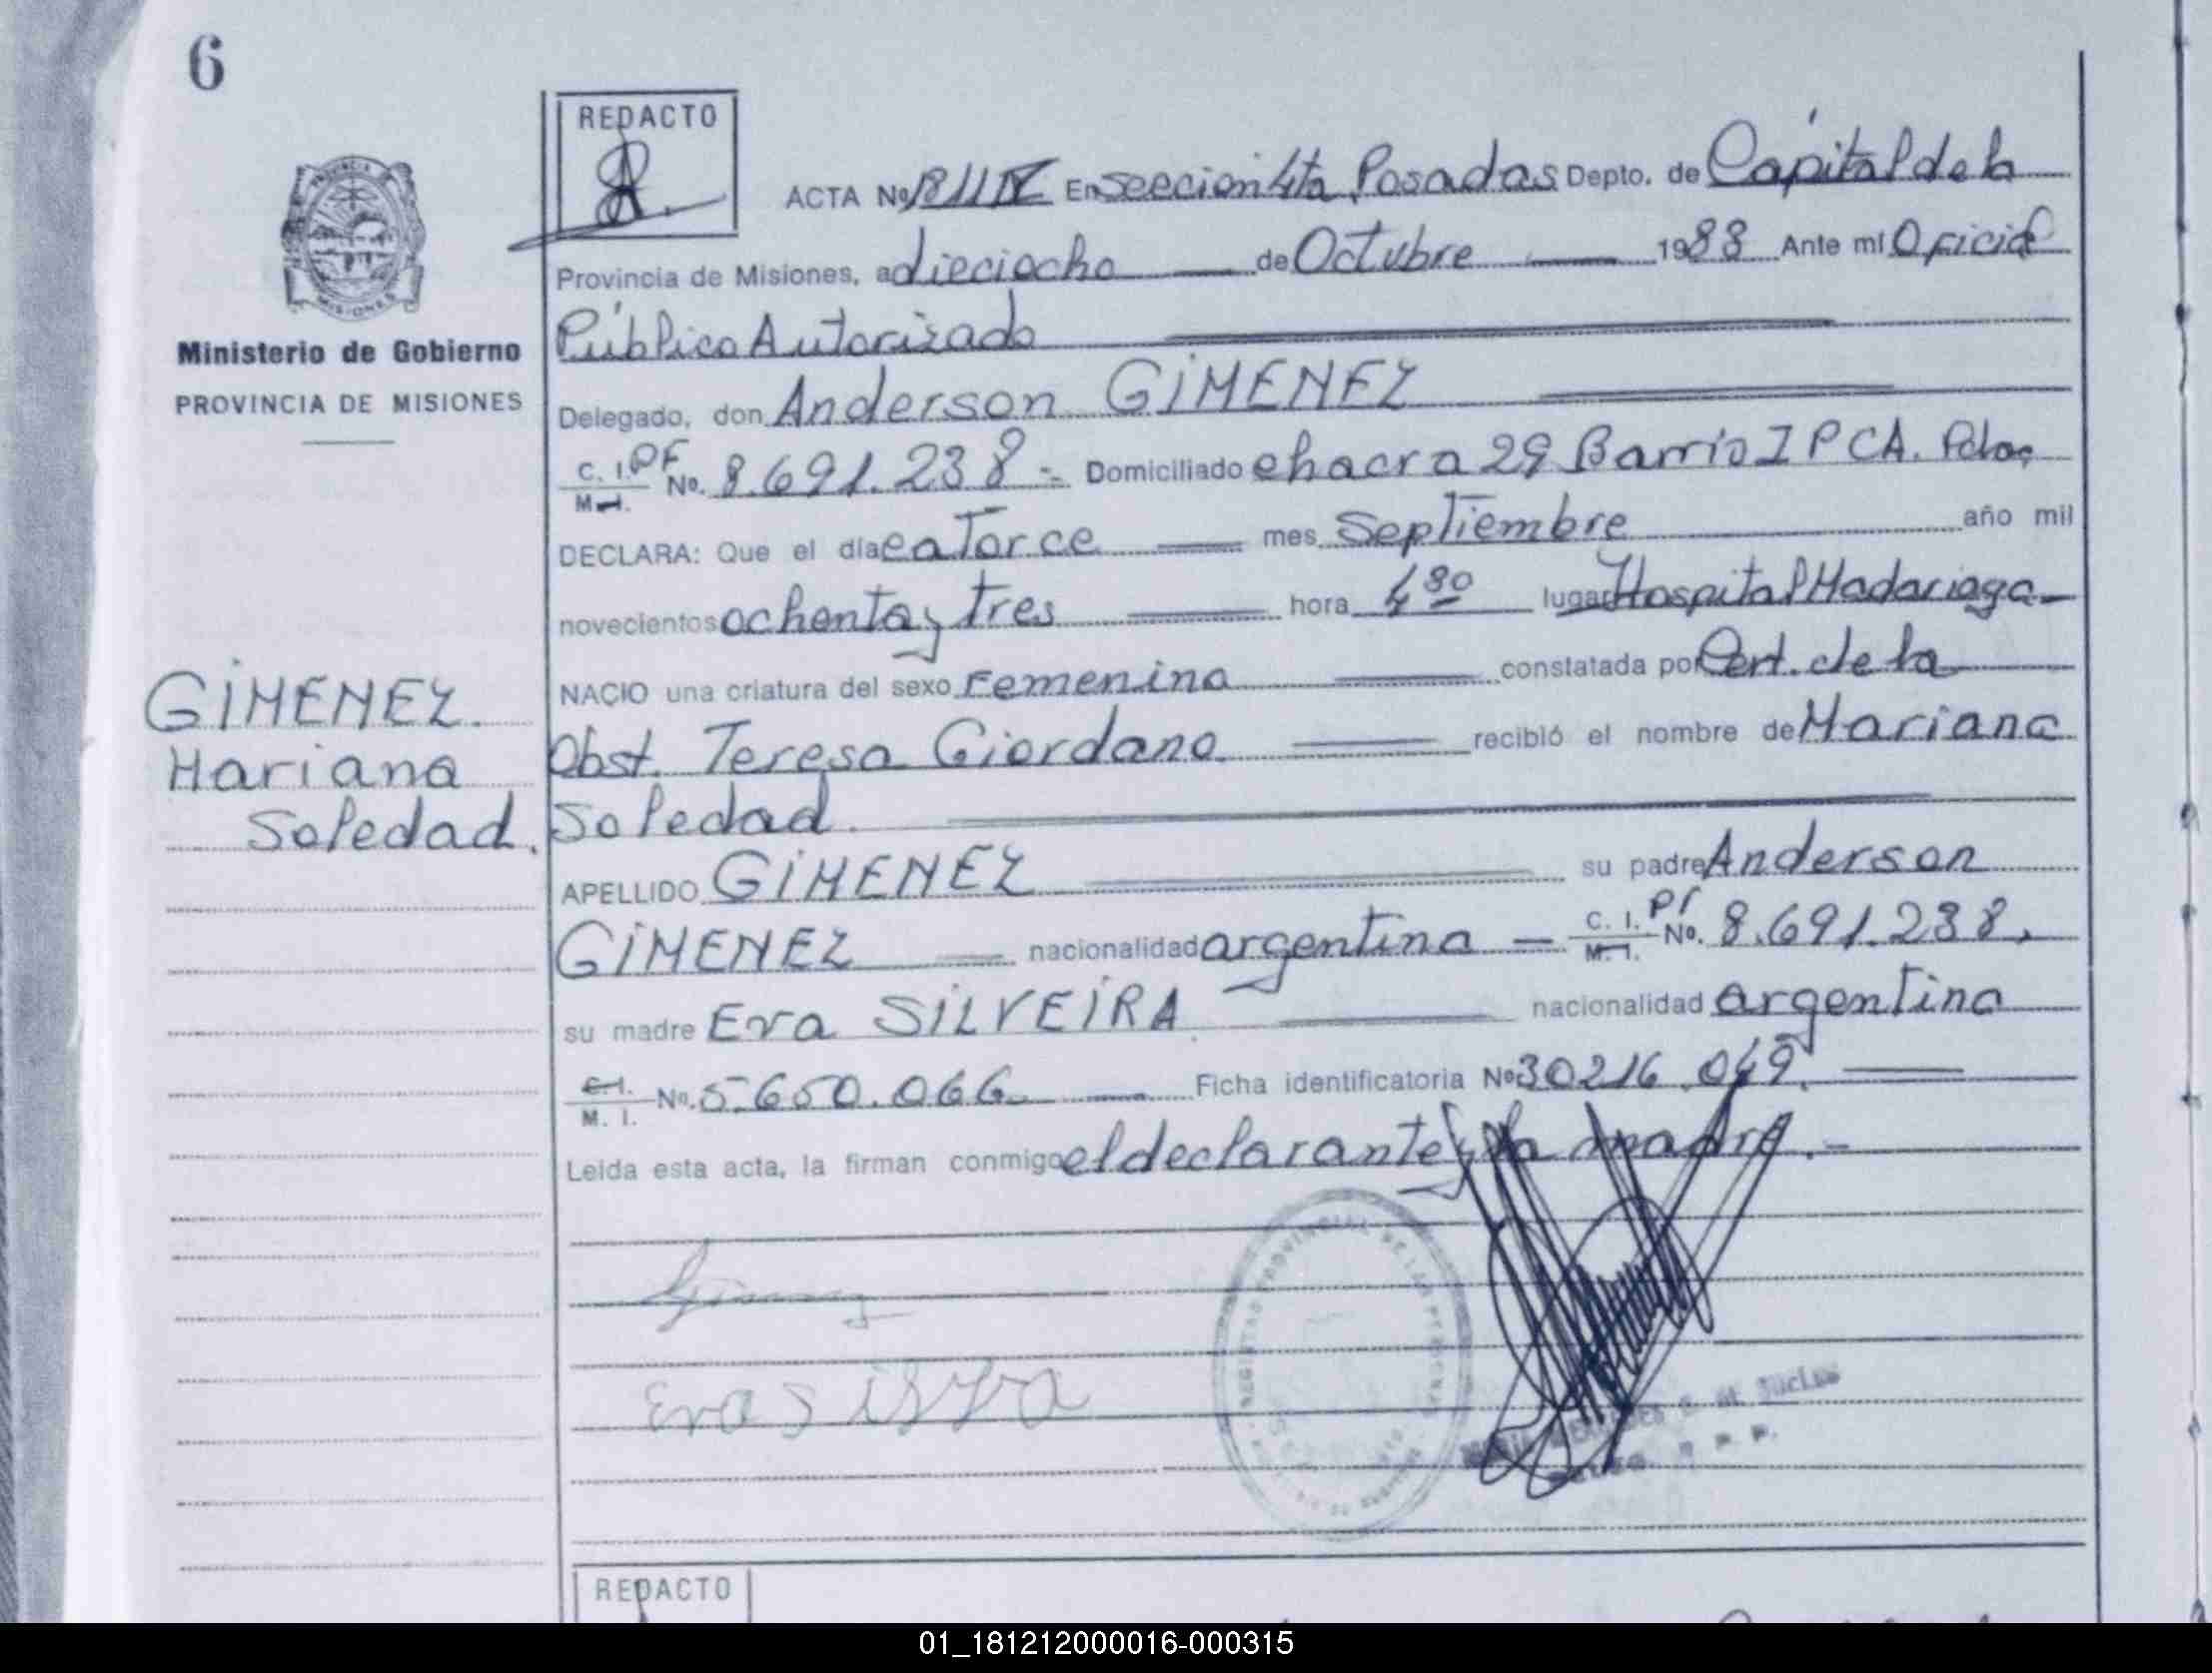 6
REDACTO
ACTA No 1811 IV En sección 4ta, Posadas Depto. de Capital de la
Provincia de Misiones, a dieciocho de Octubre 1983 Ante mí Oficial
Público Autorizado
Ministerio de Gobierno
PROVINCIA DE MISIONES
Delegado, don Anderson GIMENEZ
C. I. PF No. 8.691.238 Domiciliado chacra 29 Barrio IPCA. Pdas
M. I.
DECLARA: Que el día catorce mes Septiembre año mil
novecientos ochenta y tres hora 4 30 lugar Hospital Madariaga
NACIO una criatura del sexo Femenino constatada por Cert. de la
Obst. Teresa Giordano recibió el nombre de Mariana
Soledad.
GIMENEZ.
Mariana
Soledad.
APELLIDO GIMENEZ su padre Anderson
GIMENEZ nacionalidad argentina C. I. PF No. 8.691.238.
M. I.
su madre Eva SILVEIRA nacionalidad argentina
C. I. No. 5.650.066. Ficha identificatoria No 30216.049.
M. I.
Leída esta acta, la firman conmigo el declarante y la madre.
REGISTRO PROVINCIAL DE LAS PERSONAS
REDACTO
01_181212000016-000315